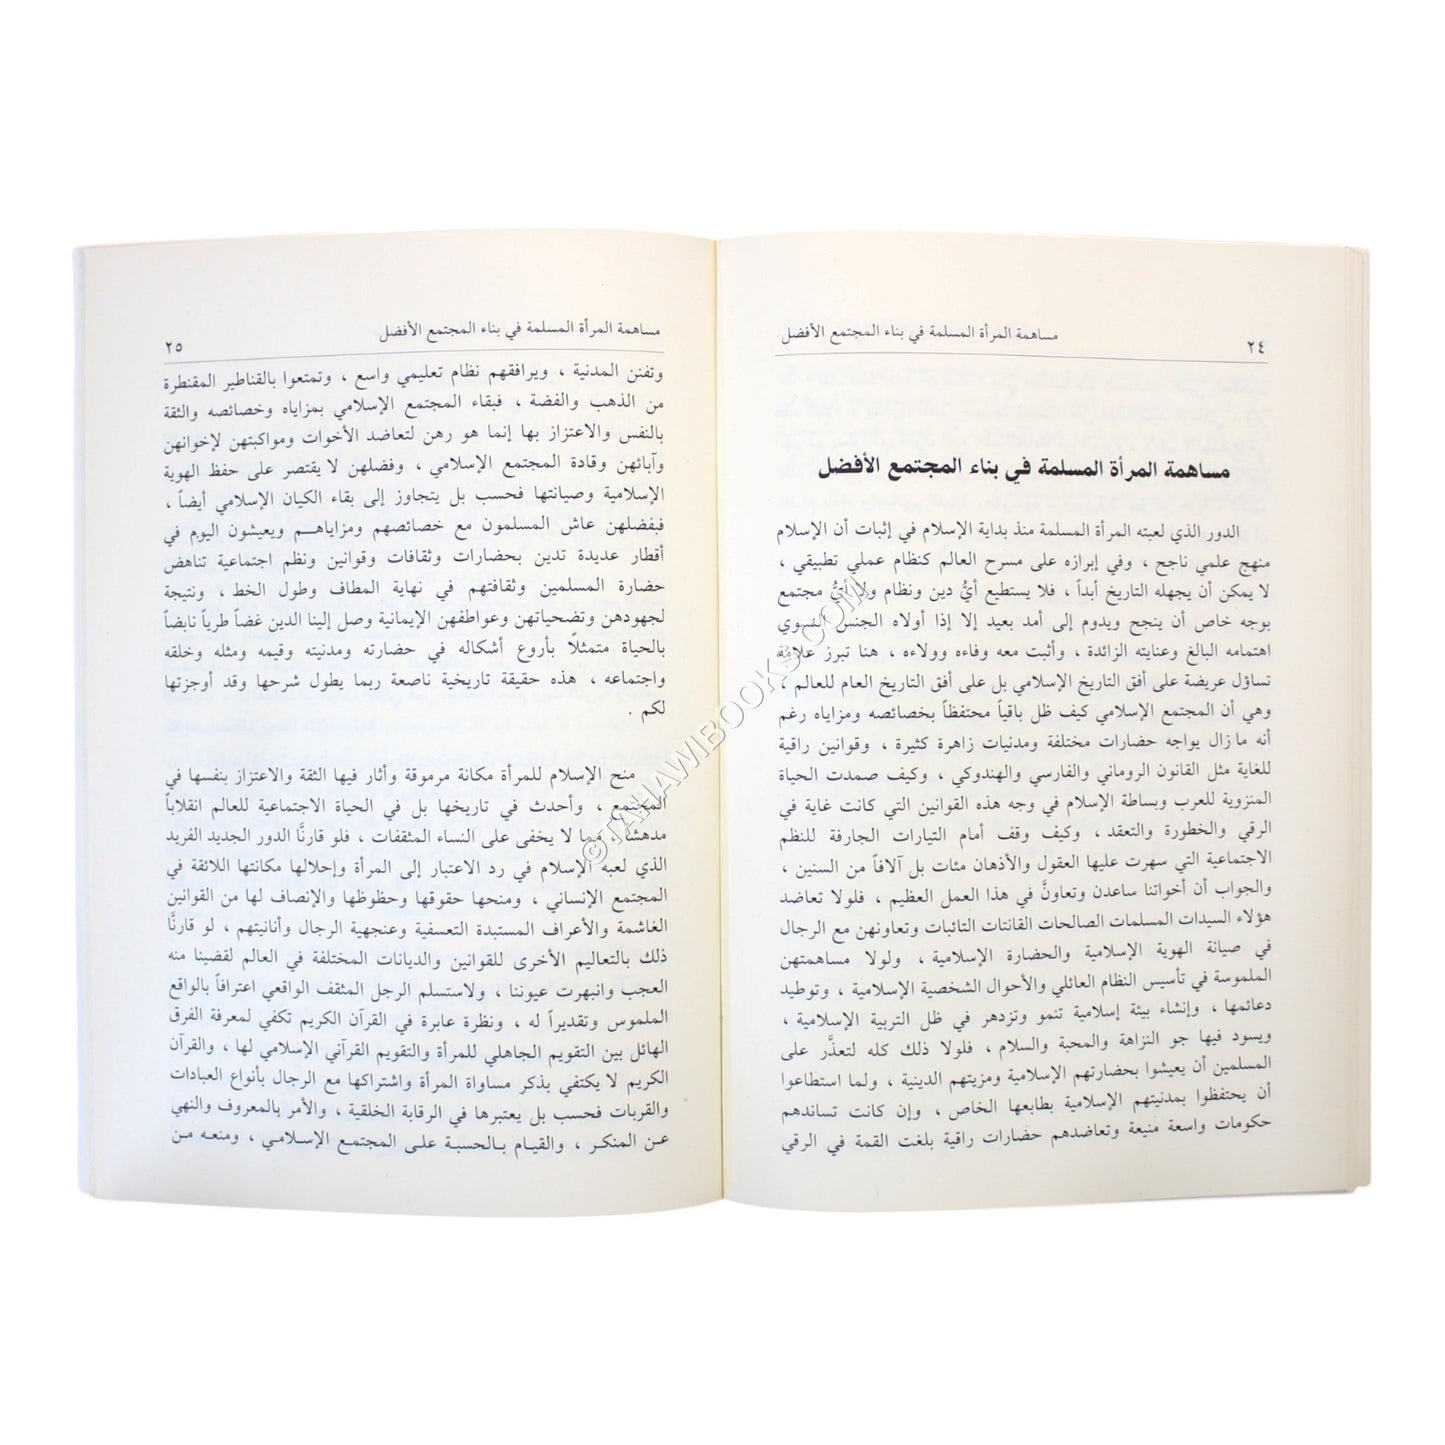 ٢٤
مساهمة المرأة المسلمة في بناء المجتمع الأفضل
مساهمة المرأة المسلمة في بناء المجتمع الأفضل
الدور الذي لعبته المرأة المسلمة منذ بداية الإسلام في إثبات أن الإسلام
منهج علمي ناجح ، وفي إبرازه على مسرح العالم كنظام عملي تطبيقي ،
لا يمكن أن يجهله التاريخ أبداً ، فلا يستطيع أيُّ دين ونظام ولا أيُّ مجتمع
بوجه خاص أن ينجح ويدوم إلى أمد بعيد إلا إذا أولاه الجنس النسوي
اهتمامه البالغ وعنايته الزائدة ، وأثبت معه وفاءه وولاءه ، هنا تبرز علامة
تساؤل عريضة على أفق التاريخ الإسلامي بل على أفق التاريخ العام للعالم ،
وهي أن المجتمع الإسلامي كيف ظل باقياً محتفظاً بخصائصه ومزاياه رغم
أنه ما زال يواجه حضارات مختلفة ومدنيات زاهرة كثيرة ، وقوانين راقية
للغاية مثل القانون الروماني والفارسي والهندوكي ، وكيف صمدت الحياة
المنزوية للعرب وبساطة الإسلام في وجه هذه القوانين التي كانت غاية في
الرقي والخطورة والتعقد ، وكيف وقف أمام التيارات الجارفة للنظم
الاجتماعية التي سهرت عليها العقول والأذهان مئات بل آلافاً من السنين ،
والجواب أن أخواتنا ساعدن وتعاونَّ في هذا العمل العظيم ، فلولا تعاضد
هؤلاء السيدات المسلمات الصالحات القانتات التائبات وتعاونهن مع الرجال
في صيانة الهوية الإسلامية والحضارة الإسلامية ، ولولا مساهمتهن
الملموسة في تأسيس النظام العائلي والأحوال الشخصية الإسلامية ، وتوطيد
دعائمها ، وإنشاء بيئة إسلامية تنمو وتزدهر في ظل التربية الإسلامية ،
ويسود فيها جو النزاهة والمحبة والسلام ، فلولا ذلك كله لتعذَّر على
المسلمين أن يعيشوا بحضارتهم الإسلامية ومزيتهم الدينية ، ولما استطاعوا
أن يحتفظوا بمدنيتهم الإسلامية بطابعها الخاص ، وإن كانت تساندهم
حكومات واسعة منيعة وتعاضدهم حضارات راقية بلغت القمة في الرقي
مساهمة المرأة المسلمة في بناء المجتمع الأفضل
٢٥
وتفنن المدنية ، ويرافقهم نظام تعليمي واسع ، وتمتعوا بالقناطير المقنطرة
من الذهب والفضة ، فبقاء المجتمع الإسلامي بمزاياه وخصائصه والثقة
بالنفس والاعتزاز بها إنما هو رهن لتعاضد الأخوات ومواكبتهن لإخوانهن
وآبائهن وقادة المجتمع الإسلامي ، وفضلهن لا يقتصر على حفظ الهوية
الإسلامية وصيانتها فحسب بل يتجاوز إلى بقاء الكيان الإسلامي أيضاً ،
فبفضلهن عاش المسلمون مع خصائصهم ومزاياهم ويعيشون اليوم في
أقطار عديدة تدين بحضارات وثقافات وقوانين ونظم اجتماعية تناهض
حضارة المسلمين وثقافتهم في نهاية المطاف وطول الخط ، ونتيجة
لجهودهن وتضحياتهن وعواطفهن الإيمانية وصل إلينا الدين غضاً طرياً نابضاً
بالحياة متمثلاً بأروع أشكاله في حضارته ومدنيته وقيمه ومثله وخلقه
واجتماعه ، هذه حقيقة تاريخية ناصعة ربما يطول شرحها وقد أوجزتها
لكم .
منح الإسلام للمرأة مكانة مرموقة وأثار فيها الثقة والاعتزاز بنفسها في
المجتمع ، وأحدث في تاريخها بل في الحياة الاجتماعية للعالم انقلاباً
مدهشاً ، مما لا يخفى على النساء المثقفات ، فلو قارنَّا الدور الجديد الفريد
الذي لعبه الإسلام في رد الاعتبار إلى المرأة وإحلالها مكانتها اللائقة في
المجتمع الإنساني ، ومنحها حقوقها وحظوظها والإنصاف لها من القوانين
الغاشمة والأعراف المستبدة التعسفية وعنجهية الرجال وأنانيتهم ، لو قارنَّا
ذلك بالتعاليم الأخرى للقوانين والديانات المختلفة في العالم لقضينا منه
العجب وانبهرت عيوننا ، ولاستسلم الرجل المثقف الواقعي اعترافاً بالواقع
الملموس وتقديراً له ، ونظرة عابرة في القرآن الكريم تكفي لمعرفة الفرق
الهائل بين التقويم الجاهلي للمرأة والتقويم القرآني الإسلامي لها ، والقرآن
الكريم لا يكتفي بذكر مساواة المرأة واشتراكها مع الرجال بأنواع العبادات
والقربات فحسب بل يعتبرها في الرقابة الخلقية ، والأمر بالمعروف والنهي
عن المنكر ، والقيام بالحسبة على المجتمع الإسلامي ، ومنعه من
©TAHAWIBOOKS.COM